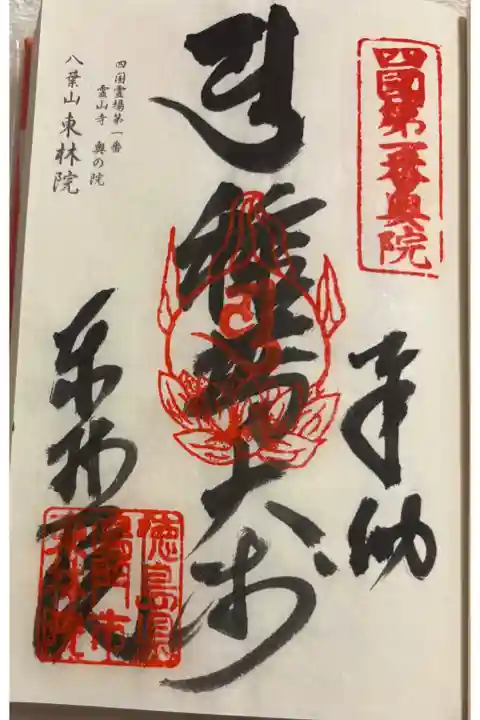 四國第一番奥院
奉納
種蒔大師
四国霊場第一番
霊山寺 奥の院
八葉山東林院
東林院
徳島県
鳴門市
東林院